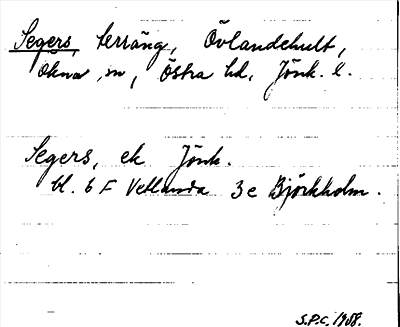 Segers, terräng, Övlandehult,
Ökna sn, Östra hd, Jönk. l.
Segers, ek Jönk.
bl. 6 F Vetlanda 3 e Björkholm.
S.P.C. 1958.